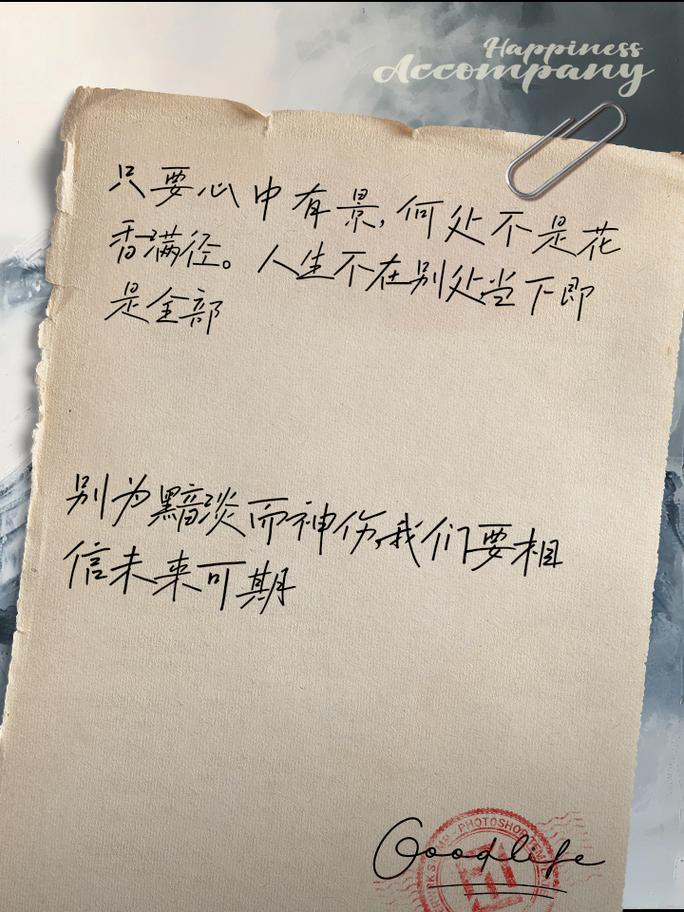 Happiness
Accompany
只要心中有景,何处不是花
香满径。人生不在别处当下即
是全部
别为黯淡而神伤,我们要相
信未来可期
PHOTOSHOP
Goodlife